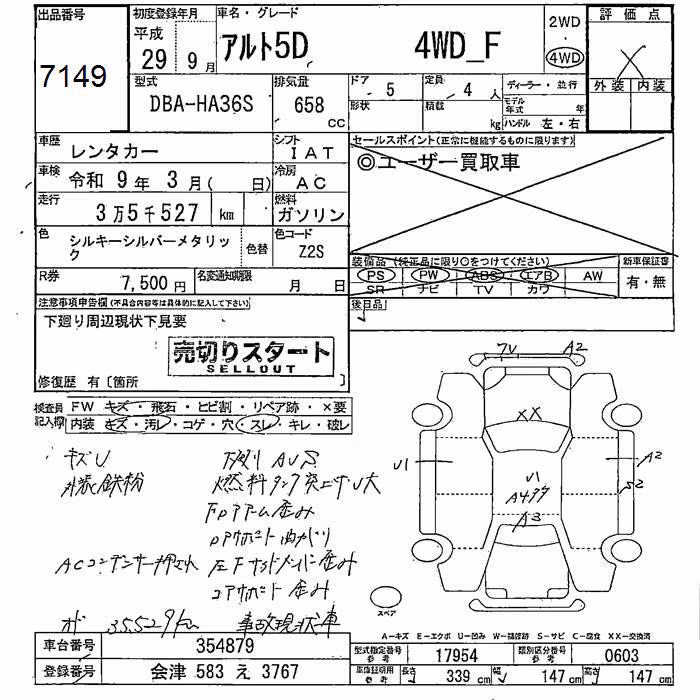 出品番号
7149
初度登録年月
平成
29年 9月
車名・グレード
アルト5D 4WD_F
2WD
4WD
評価点
外装 内装
型式
DBA-HA36S
排気量
658
CC
ドア
5
定員
4人
形状
積載
kg
ディーラー・並行
モデル年式 年
ハンドル 左・右
車歴
レンタカー
シフト
IAT
セールスポイント(正常に機能するものに限ります)
◎ユーザー買取車
車検
令和 9年 3月( 日)
冷房
AC
走行
3万5千527 km
燃料
ガソリン
色
シルキーシルバーメタリック
色替
色コード
Z2S
装備品(純正品に限り○をつけてください)
PS PW ABS エアB AW
SR ナビ TV カワ
新車保証書
有・無
R券
7,500円
名変通知期限
月 日
後日品
注意事項申告欄(不具合内容等は具体的に記入して下さい)
下廻り周辺現状下見要
売切りスタート
SELLOUT
修復歴 有〔箇所 〕
検査員記入欄
FW キズ・飛石・ヒビ割・リペア跡・×要
内装 キズ・汚レ・コゲ・穴・スレ・キレ・破レ
キズU
外装鉄粉
下廻り AUS
燃料タンク突上ゲU大
FロアアーM歪み
コアサポート曲がり
ACコンデンサー押され
左Fサイドメンバー歪み
コアサポート歪み
オド 35529km
事故現状車
7U
A2
XX
U1
U1
A499
A3
A2
S2
スペア
A-キズ E-エクボ U-凹み W-補修跡 S-サビ C-腐食 XX-交換済
車台番号
354879
登録番号
会津 583 え 3767
型式指定番号
参考
17954
類別区分番号
参考
0603
車庫証明用
参考
長さ
339cm
幅
147cm
高さ
147cm